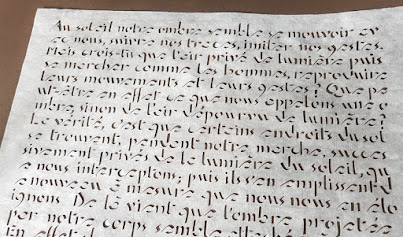 Au soleil notre ombre semble se mouvoir av
ec nous, suivre nos traces, imiter nos gestes.
Mais crois-tu que l'air privé de lumière puis
se marcher comme les hommes, reproduire
leurs mouvements et leurs gestes? Que pe
ut être en effet ce que nous appelons une o
mbre, sinon de l'air dépourvu de lumière?
La vérité, c'est que certains endroits du sol
se trouvent, pendant notre marche, succes
sivement privés de la lumière du soleil, qu
e nous interceptons; puis ils s'en emplissent d
e nouveau à mesure que nous nous en élo
ignons. De là vient que l'ombre projetée
par notre corps semble